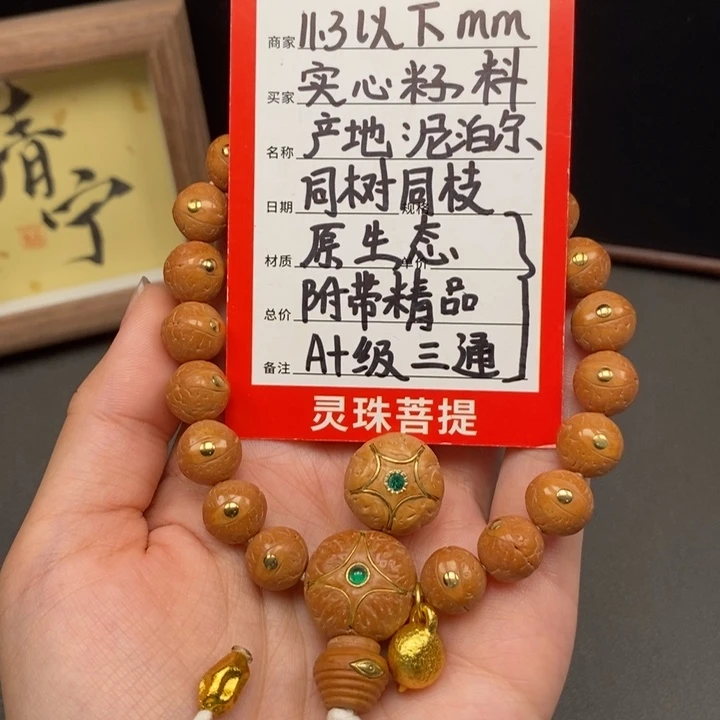 商家 11.3以下mm
买家 实心籽料
名称 产地泥泊尔、
日期 同树同枝 规格
材质 原生态 单价
总价 附带精品
备注 A+级三通
灵珠菩提
清宁